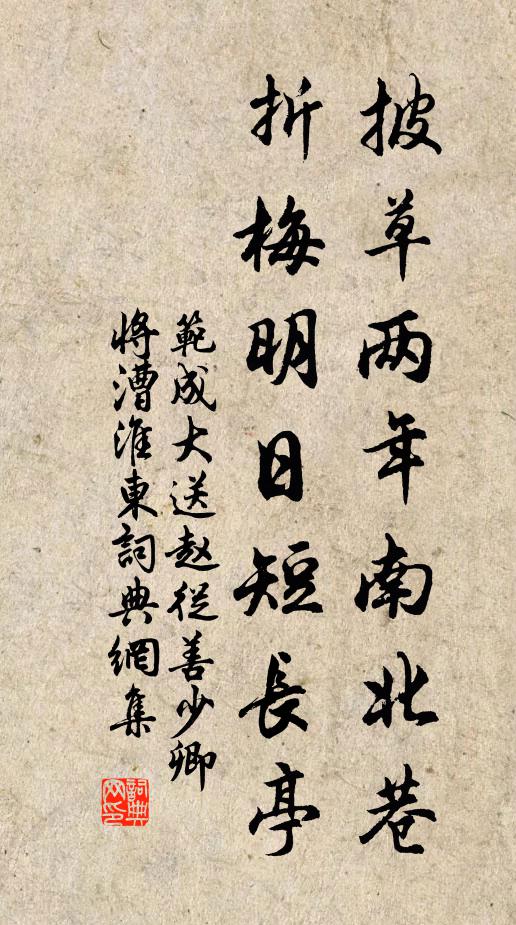 披草两年南北巷
折梅明日短長亭
範成大送赵從善少卿
將漕淮東詞典網集
詞典网印